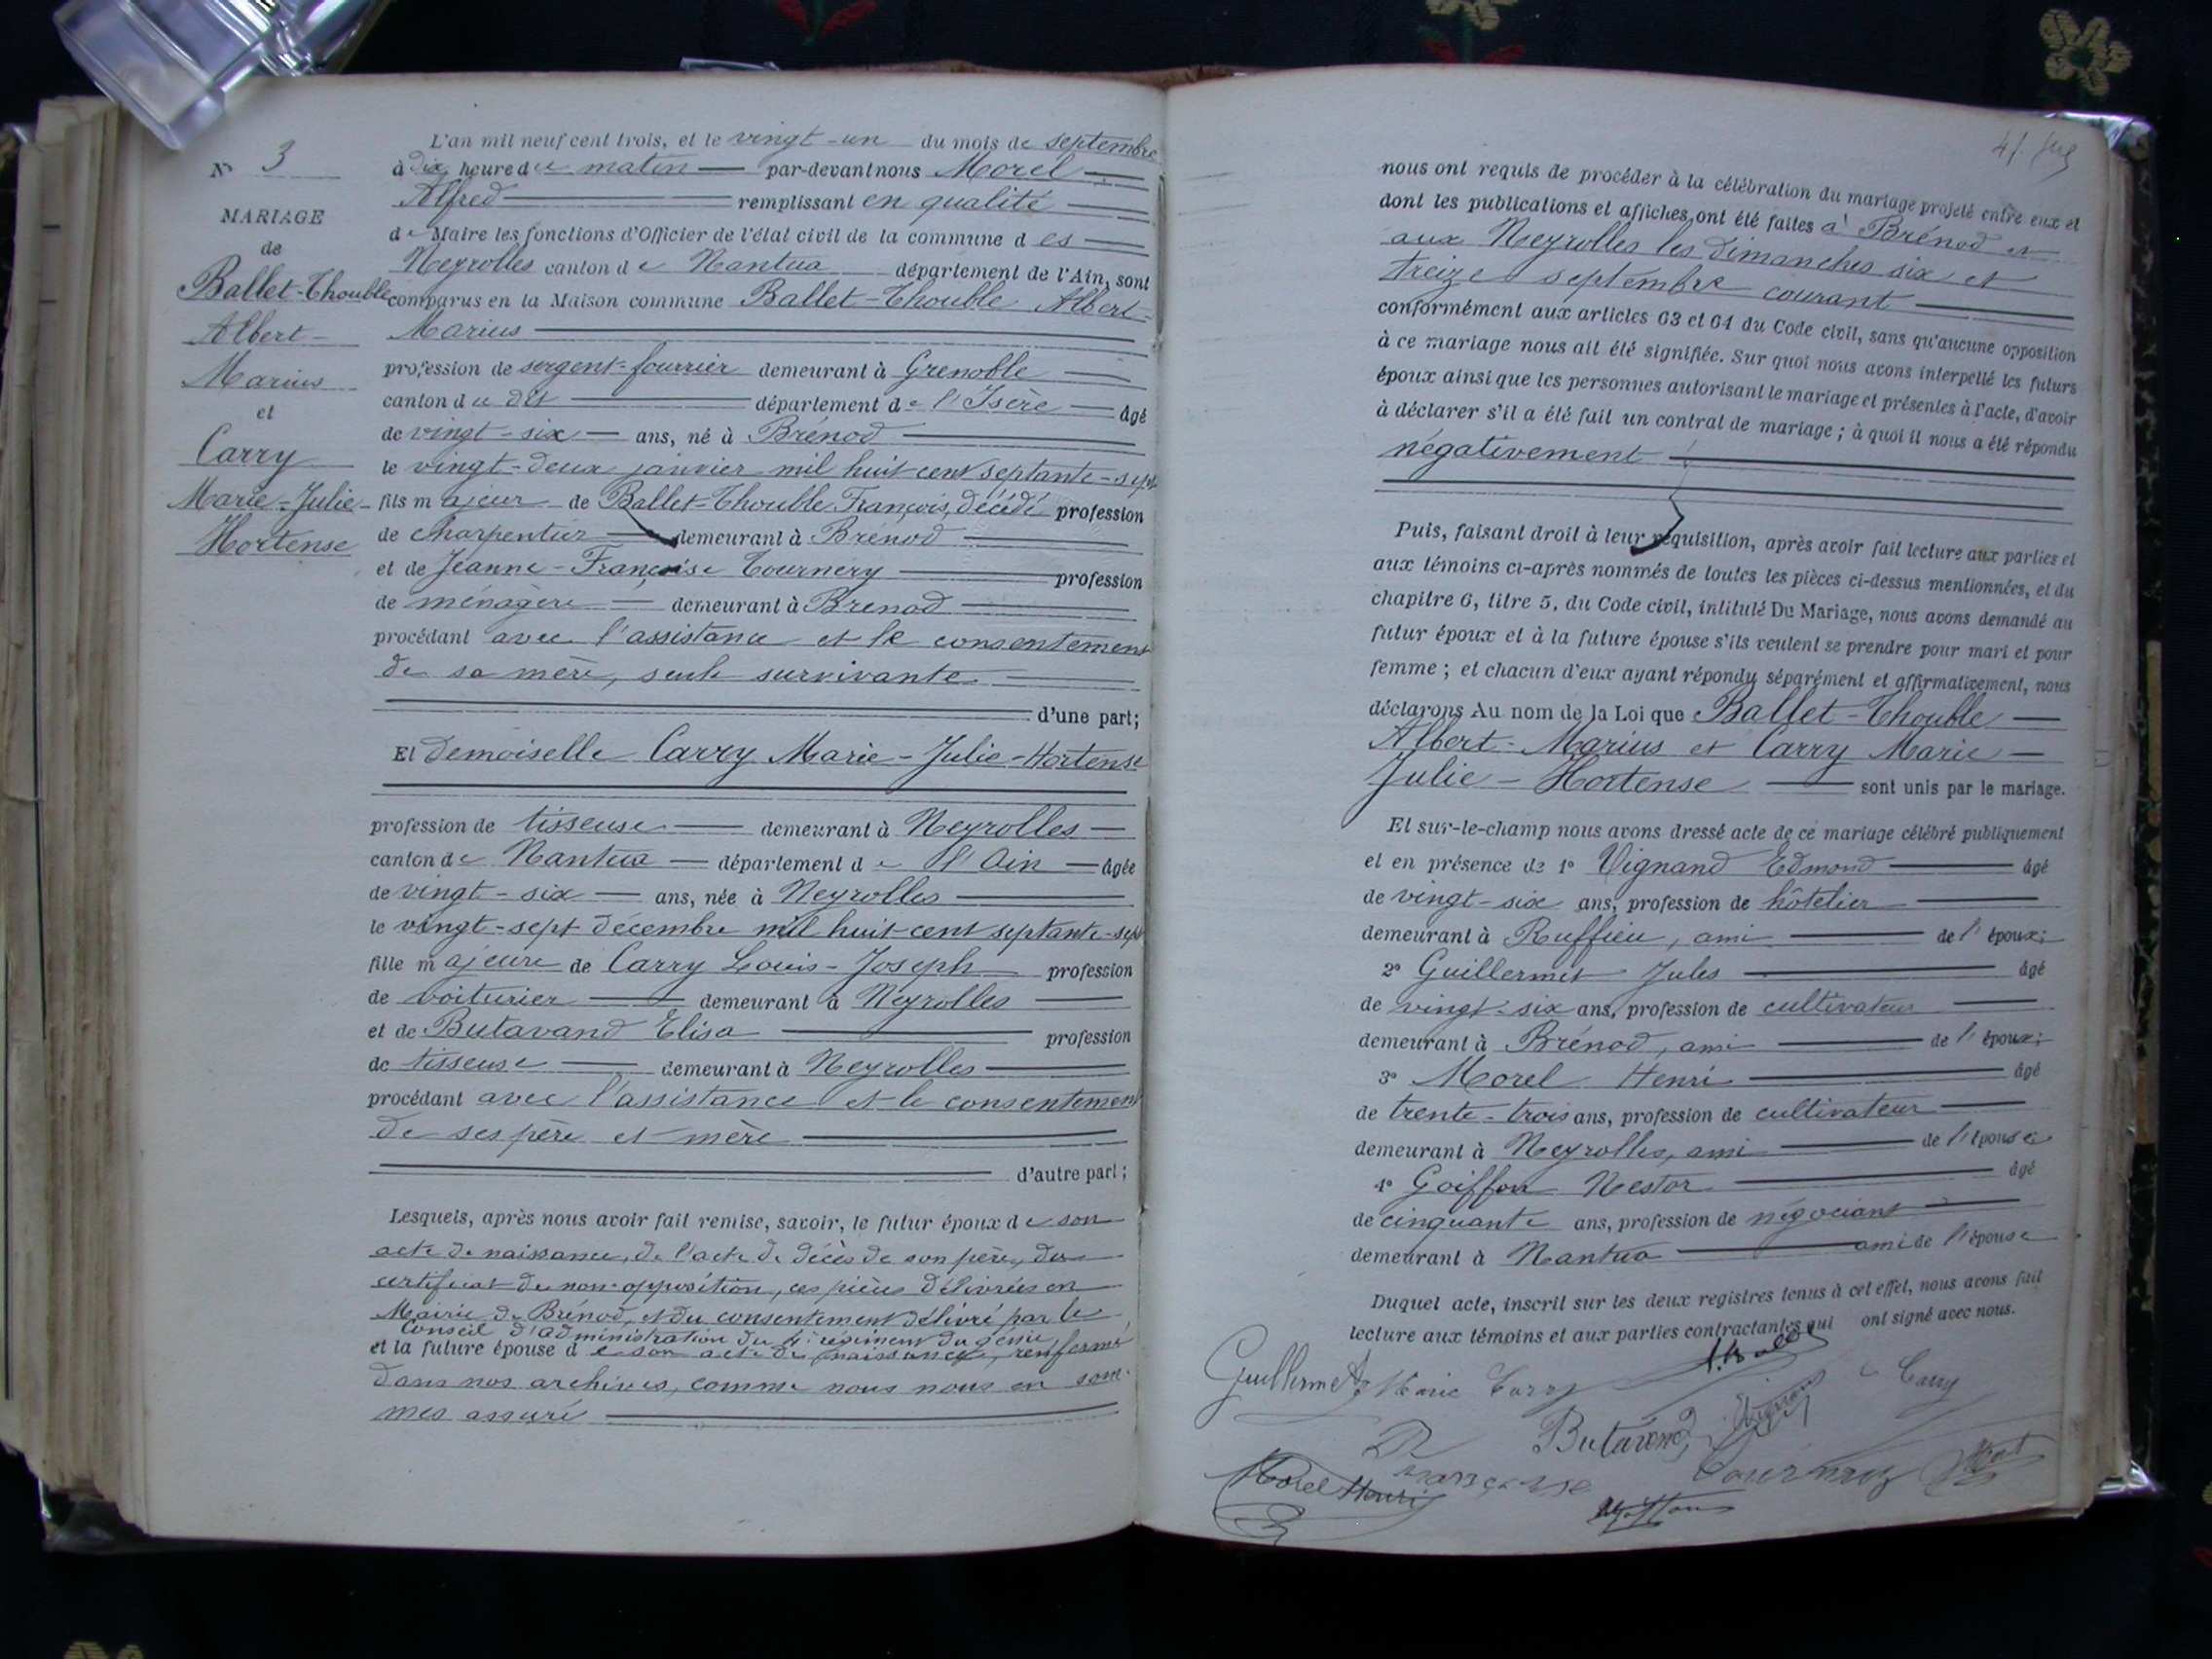 N° 3
MARIAGE
de
Ballet-Thouble
Albert-
Marius
et
Carry
Marie-Julie-
Hortense
L'an mil neuf cent trois, et le vingt-un du mois de septembre
à dix heure du matin par-devant nous Morel
Alfred remplissant en qualité
de Maire les fonctions d'Officier de l'état civil de la commune des
Neyrolles canton de Nantua département de l'Ain, sont
comparus en la Maison commune Ballet-Thouble Albert-
Marius
profession de sergent-fourrier demeurant à Grenoble
canton du dit département de l'Isère âgé
de vingt-six ans, né à Brénod
le vingt-deux janvier mil huit cent septante-sept
fils majeur de Ballet-Thouble François, décédé profession
de charpentier demeurant à Brénod
et de Jeanne-Françoise Tournery profession
de ménagère demeurant à Brénod
procédant avec l'assistance et le consentement
de sa mère, seule survivante
d'une part;
Et Demoiselle Carry Marie-Julie-Hortense
profession de tisseuse demeurant à Neyrolles
canton de Nantua département de l'Ain âgée
de vingt-six ans, née à Neyrolles
le vingt-sept décembre mil huit cent septante-sept
fille majeure de Carry Louis-Joseph profession
de voiturier demeurant à Neyrolles
et de Butavand Elisa profession
de tisseuse demeurant à Neyrolles
procédant avec l'assistance et le consentement
de ses père et mère
d'autre part;
Lesquels, après nous avoir fait remise, savoir, le futur époux de son
acte de naissance, de l'acte de décès de son père, du
certificat de non-opposition, ces pièces délivrées en
Mairie de Brénod, et du consentement délivré par le
Conseil d'administration du 4e régiment du génie,
et la future épouse de son acte de naissance, renfermé
dans nos archives, comme nous nous en som-
mes assuré
nous ont requis de procéder à la célébration du mariage projeté entre eux et
dont les publications et affiches ont été faites à Brénod et
aux Neyrolles les dimanches six et
treize septembre courant
conformément aux articles 63 et 64 du Code civil, sans qu'aucune opposition
à ce mariage nous ait été signifiée. Sur quoi nous avons interpellé les futurs
époux ainsi que les personnes autorisant le mariage et présentes à l'acte, d'avoir
à déclarer s'il a été fait un contrat de mariage; à quoi il nous a été répondu
négativement
Puis, faisant droit à leur réquisition, après avoir fait lecture aux parties et
aux témoins ci-après nommés de toutes les pièces ci-dessus mentionnées, et du
chapitre 6, titre 5, du Code civil, intitulé Du Mariage, nous avons demandé au
futur époux et à la future épouse s'ils veulent se prendre pour mari et pour
femme; et chacun d'eux ayant répondu séparément et affirmativement, nous
déclarons Au nom de la Loi que Ballet-Thouble
Albert-Marius et Carry Marie-
Julie-Hortense sont unis par le mariage.
Et sur-le-champ nous avons dressé acte de ce mariage célébré publiquement
et en présence de 1° Vignand Edmond âgé
de vingt-six ans, profession de hôtelier
demeurant à Ruffieu, ami de l'époux;
2° Guillermet Jules âgé
de vingt-six ans, profession de cultivateur
demeurant à Brénod, ami de l'époux;
3° Morel Henri âgé
de trente-trois ans, profession de cultivateur
demeurant à Neyrolles, ami de l'épouse
4° Goiffon Nestor âgé
de cinquante ans, profession de négociant
demeurant à Nantua ami de l'épouse
Duquel acte, inscrit sur les deux registres tenus à cet effet, nous avons fait
lecture aux témoins et aux parties contractantes qui ont signé avec nous.
Guillermet Marie Carry Carry
Butavand Vignand
Françoise Tournery
Morel Henri